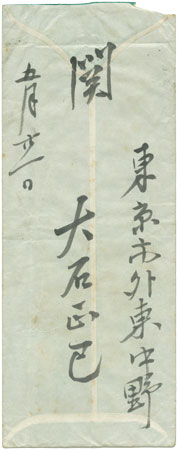 東京市外東中野
関
大石正巳
五月廿一日